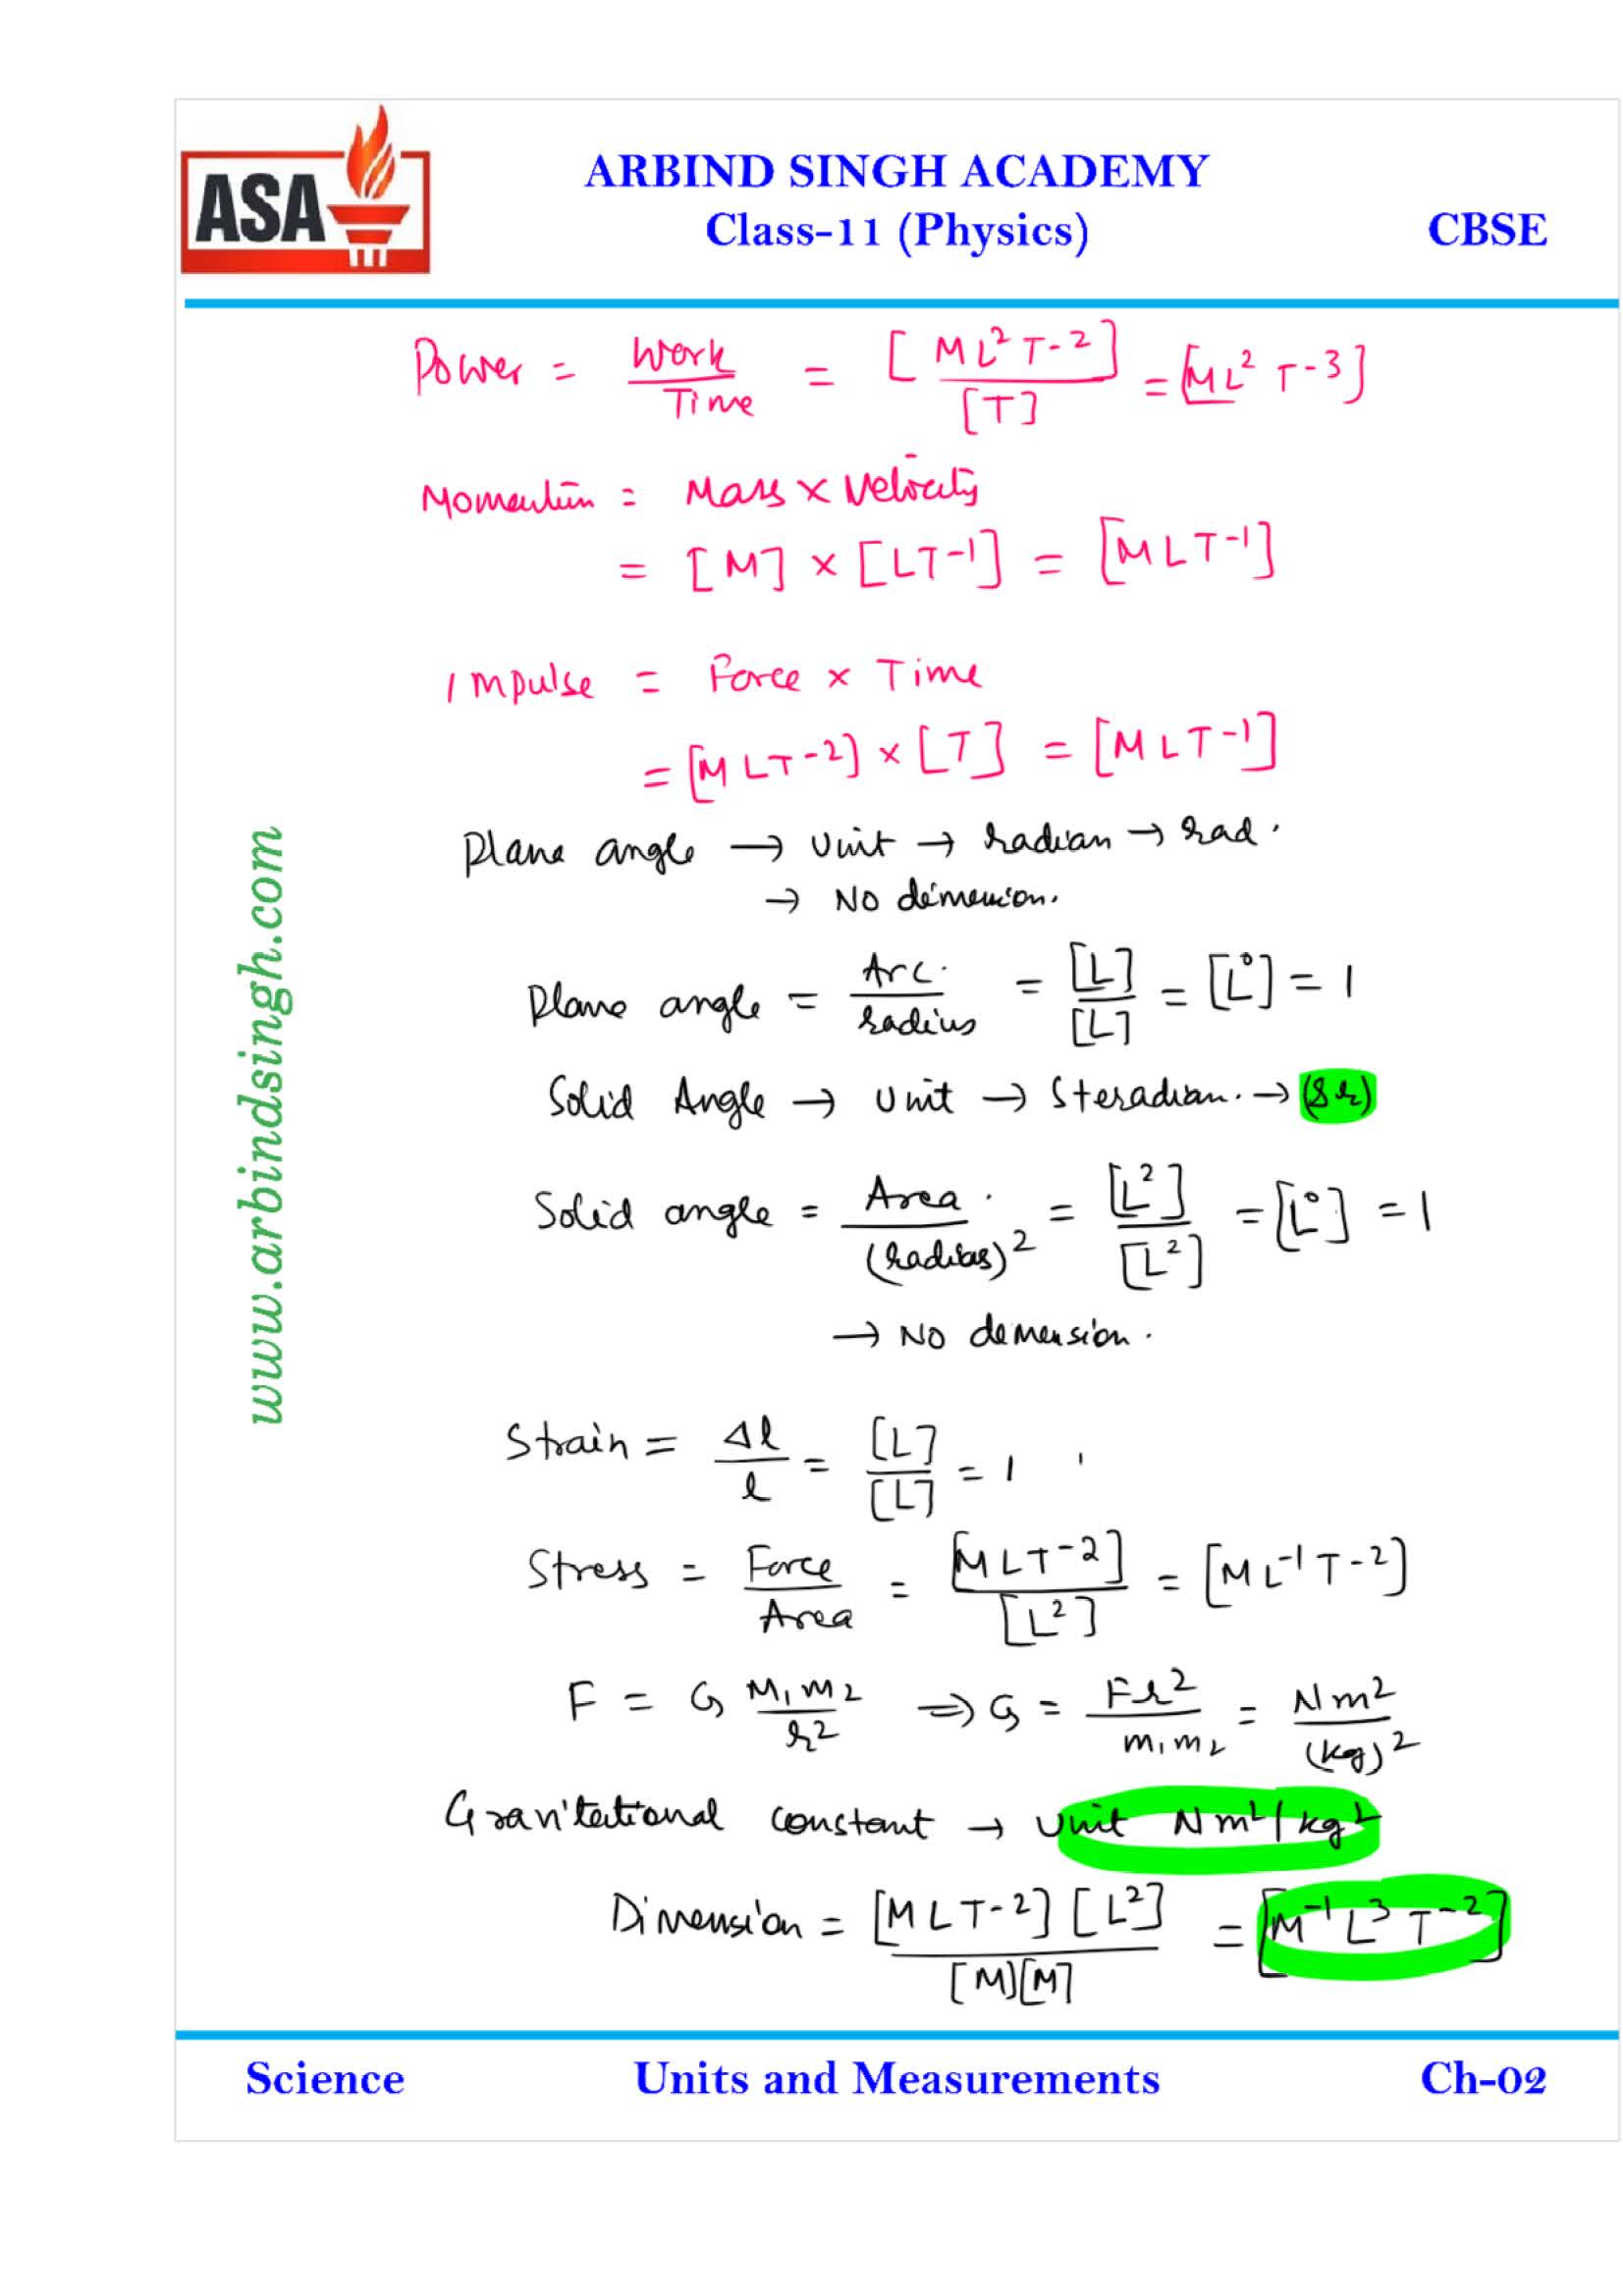 ASA
ARBIND SINGH ACADEMY
Class-11 (Physics) CBSE
Power = Work/Time = [ML²T-2]/[T] = [ML²T-3]
Momentum = Mass × Velocity
= [M] × [LT-1] = [MLT-1]
Impulse = Force × Time
= [MLT-2] × [T] = [MLT-1]
Plane angle → Unit → radian → rad.
→ No dimension.
Plane angle = Arc./radius = [L]/[L] = [L°] = 1
Solid Angle → Unit → Steradian. → (Sr)
Solid angle = Area./(radius)² = [L²]/[L²] = [L°] = 1
→ No demension.
Strain = Δl/l = [L]/[L] = 1
Stress = Force/Area = [MLT-2]/[L²] = [ML-1T-2]
F = G M₁m₂/r² ⇒ G = Fr²/m₁m₂ = Nm²/(kg)²
Gravitational constant → Unit Nm²/kg²
Dimension = [MLT-2][L²]/[M][M] = [M-1L³T-2]
www.arbindsingh.com
Science Units and Measurements Ch-02